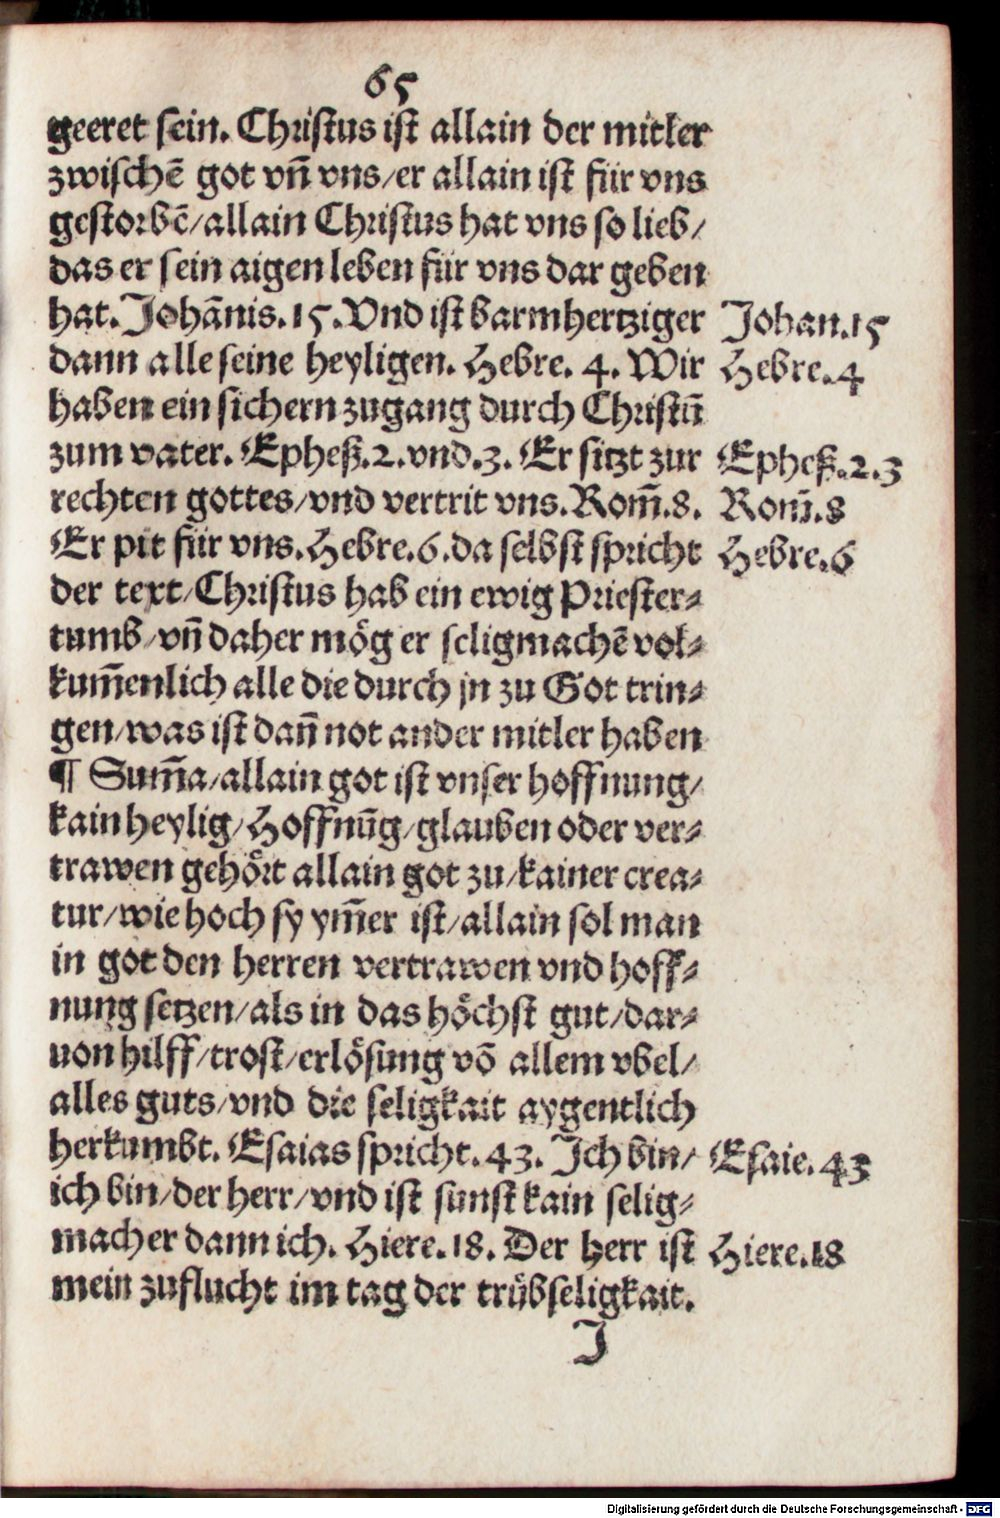 65
geeret sein. Christus ist allain der mitler
zwischē got vn̄ vns/er allain ist für vns
gestorbē/allain Christus hat vns so lieb/
das er sein aigen leben für vns dar geben
hat. Johānis. 15. Vnd ist barmhertziger
Johan. 15
dann alle seine heyligen. Hebre. 4. Wir
Hebre. 4
haben ein sichern zugang durch Christū
zum vater. Epheß. 2. vnd. 3. Er sitzt zur
Epheß. 2. 3
rechten gottes/vnd vertrit vns. Rom̄. 8.
Rom̄. 8
Er pit für vns. Hebre. 6. da selbst spricht
Hebre. 6
der text/Christus hab ein ewig Priester⸗
tumb/vn̄ daher mög er seligmachē vol⸗
kum̄enlich alle die durch jn zu Got trin⸗
gen/was ist dan̄ not ander mitler haben
¶ Sum̄a/allain got ist vnser hoffnung/
kain heylig/Hoffnūg/glauben oder ver⸗
trawen gehört allain got zu/kainer crea⸗
tur/wie hoch sy ym̄er ist/allain sol man
in got den herren vertrawen vnd hoff⸗
nung setzen/als in das höchst gut/dar⸗
uon hilff/trost/erlösung vō allem vbel/
alles guts/vnd die seligkait aygentlich
herkumbt. Esaias spricht. 43. Ich bin/
Esaie. 43
ich bin/der herr/vnd ist sunst kain selig⸗
macher dann ich. Hiere. 18. Der herr ist
Hiere. 18
mein zuflucht im tag der trübseligkait.
J
Digitalisierung gefördert durch die Deutsche Forschungsgemeinschaft - DFG